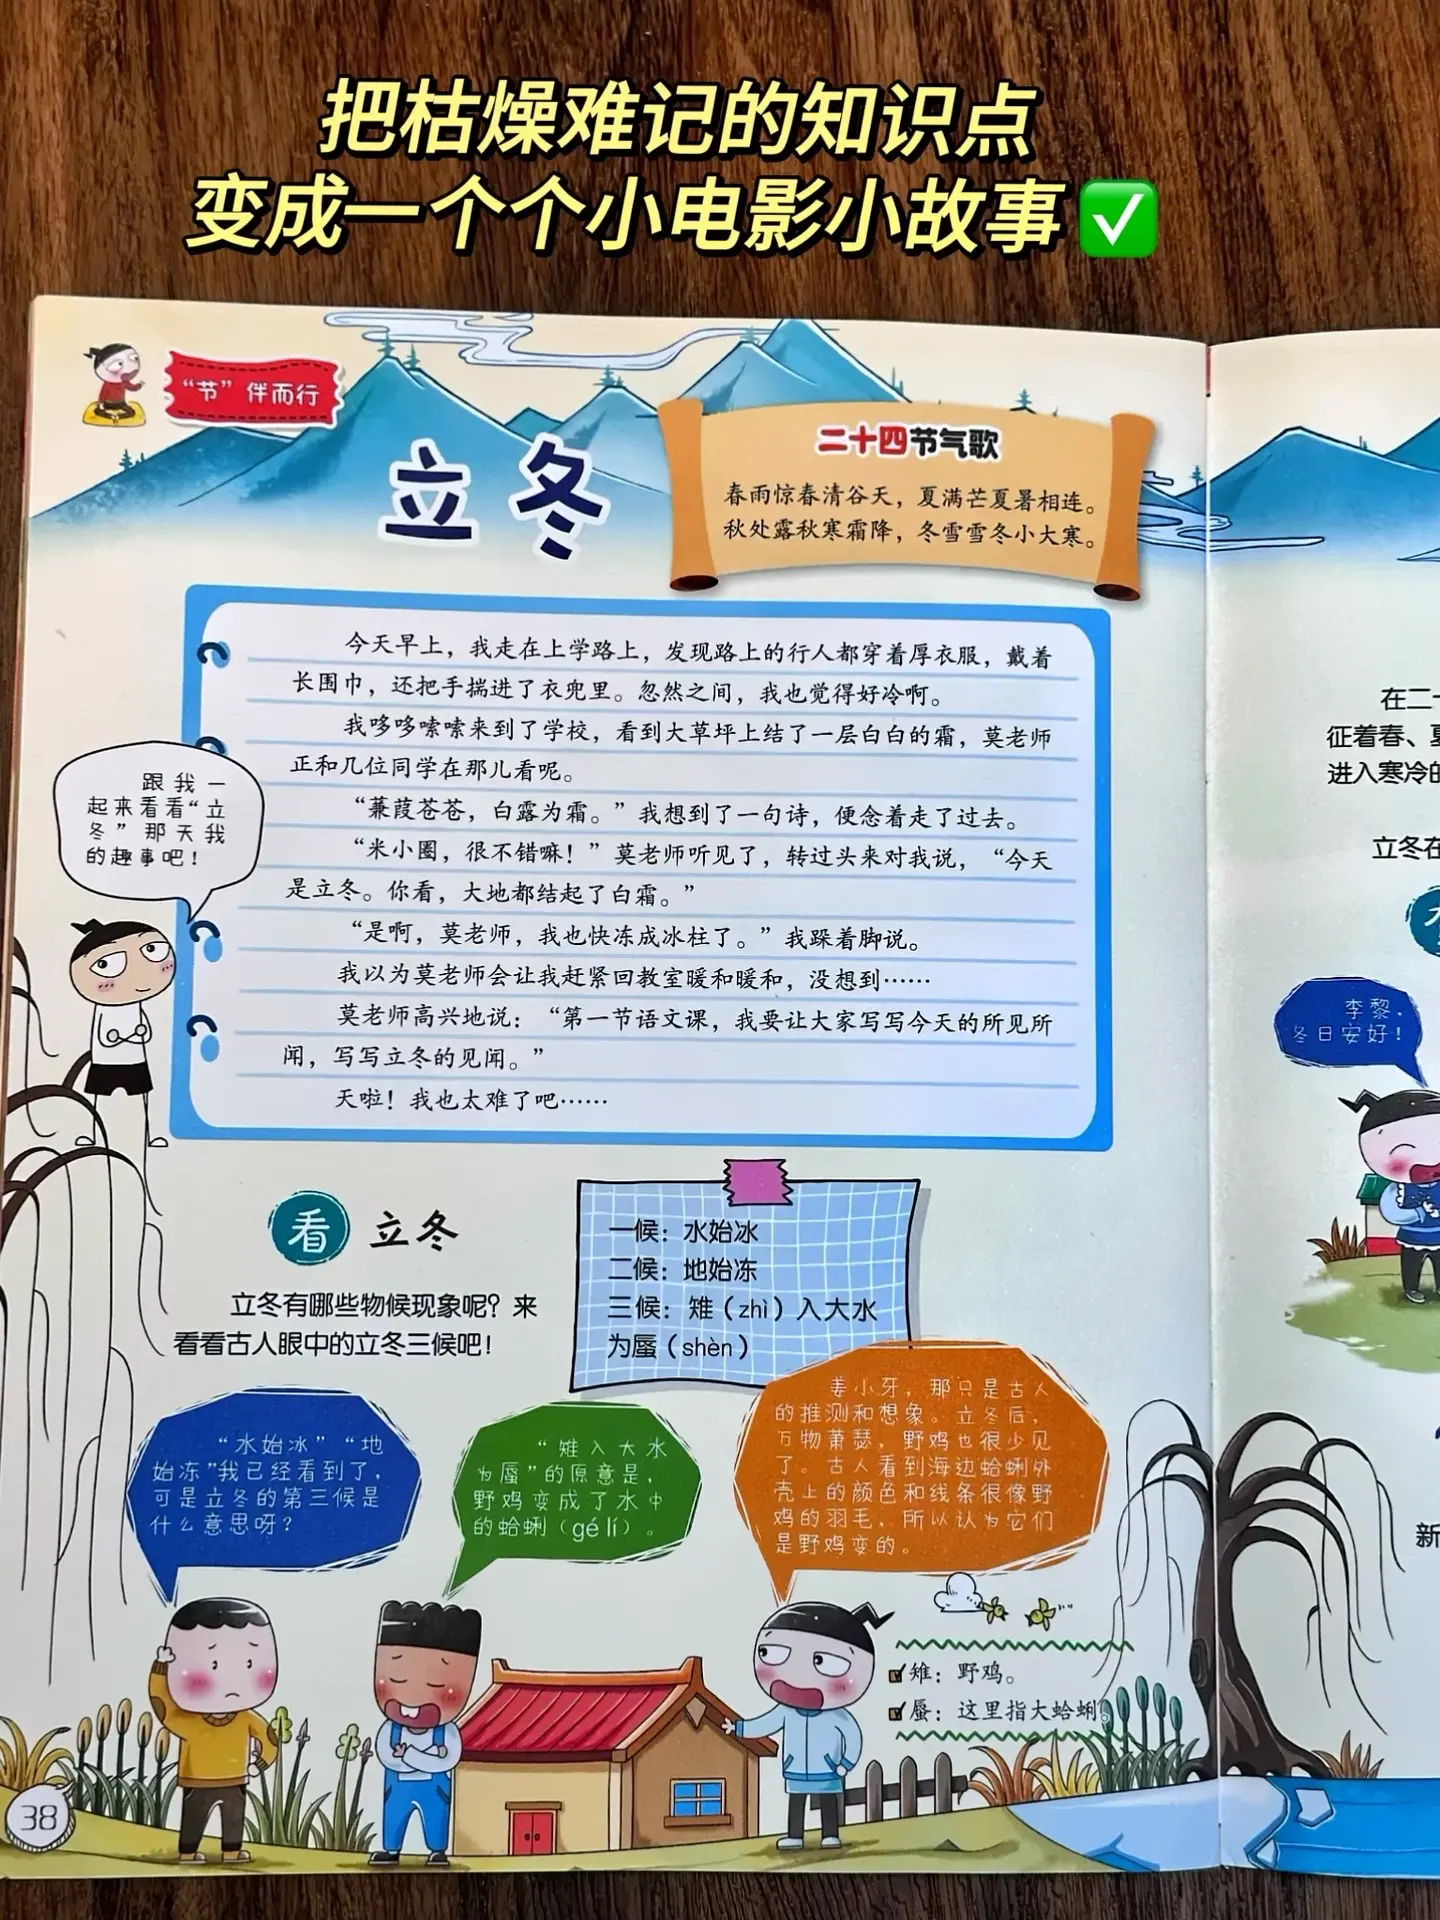 把枯燥难记的知识点
变成一个个小电影小故事✅
“节”伴而行
立冬
二十四节气歌
春雨惊春清谷天，夏满芒夏暑相连。
秋处露秋寒霜降，冬雪雪冬小大寒。
今天早上，我走在上学路上，发现路上的行人都穿着厚衣服，戴着
长围巾，还把手揣进了衣兜里。忽然之间，我也觉得好冷啊。
我哆哆嗦嗦来到了学校，看到大草坪上结了一层白白的霜，莫老师
正和几位同学在那儿看呢。
“蒹葭苍苍，白露为霜。”我想到了一句诗，便念着走了过去。
“米小圈，很不错嘛！”莫老师听见了，转过头来对我说，“今天
是立冬。你看，大地都结起了白霜。”
“是啊，莫老师，我也快冻成冰柱了。”我跺着脚说。
我以为莫老师会让我赶紧回教室暖和暖和，没想到……
莫老师高兴地说：“第一节语文课，我要让大家写写今天的所见所
闻，写写立冬的见闻。”
天啦！我也太难了吧……
跟我一
起来看看“立
冬”那天我
的趣事吧！
看 立冬
立冬有哪些物候现象呢？来
看看古人眼中的立冬三候吧！
一候：水始冰
二候：地始冻
三候：雉（zhì）入大水
为蜃（shèn）
“水始冰”“地
始冻”我已经看到了，
可是立冬的第三候是
什么意思呀？
“雉入大水
为蜃”的原意是，
野鸡变成了水中
的蛤蜊（gé lí）。
姜小牙，那只是古人
的推测和想象。立冬后，
万物萧瑟，野鸡也很少见
了。古人看到海边蛤蜊外
壳上的颜色和线条很像野
鸡的羽毛，所以认为它们
是野鸡变的。
雉：野鸡。
蜃：这里指大蛤蜊。
38
在二十
征着春、夏
进入寒冷的
立冬在
李黎，
冬日安好！
新